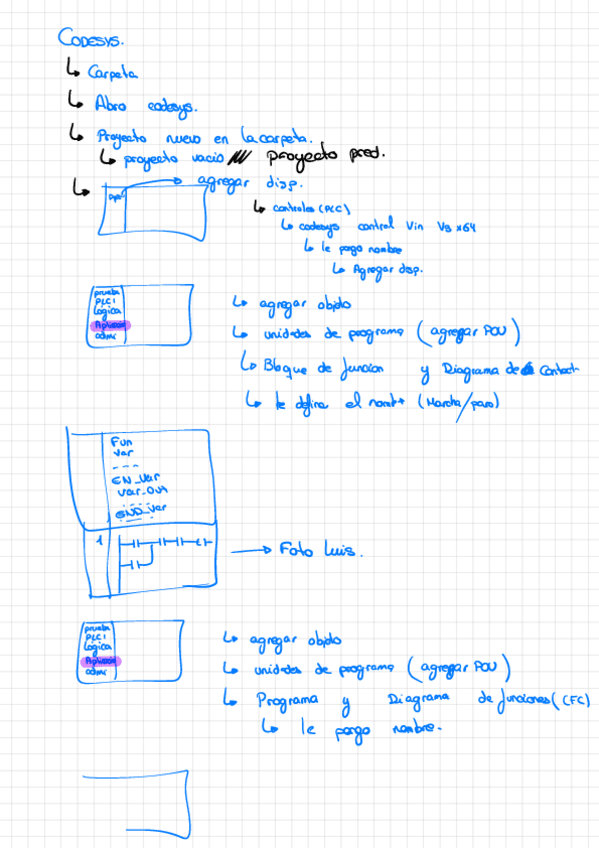 CODESYS.
↳ Carpeta
↳ Abro codesys.
↳ Proyecto nuevo en la carpeta.
↳ proyecto vacio /// proyecto pred.
↳ → agregar disp.
↳ controles (PLC)
↳ codesys control Vin V3 x64
↳ le pongo nombre
↳ Agregar disp.
prueba
PLC1
Logica
Aplicacion
↳ agregar objeto
↳ unidades de programa (agregar POU)
↳ Bloque de funcion y Diagrama de Contact
↳ le define el nombre (Marcha/paro)
Fun
Var
- - -
EN_Var
Var_Out
- - - -
END_Var
1
→ Foto Luis.
prueba
PLC1
Logica
Aplicacion
↳ agregar objeto
↳ unidades de programa (agregar POU)
↳ Programa y Diagrama de funciones (CFC)
↳ le pongo nombre.